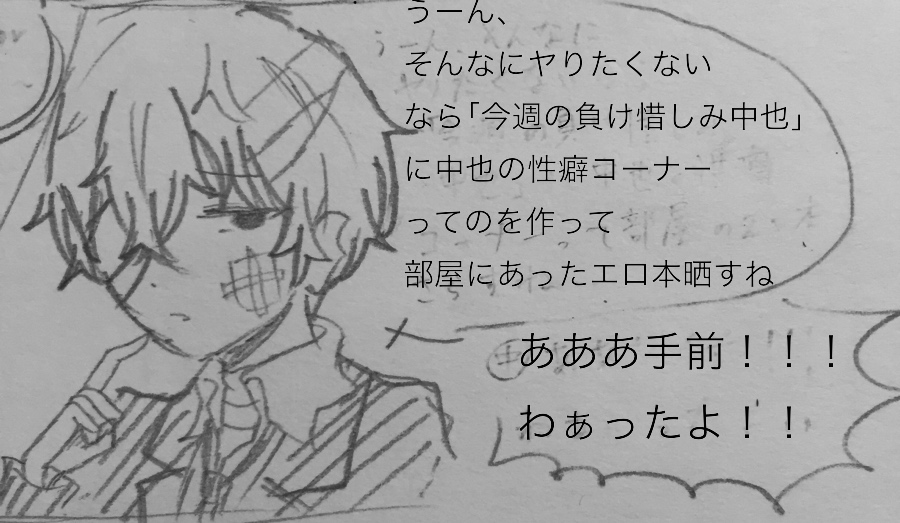 うーん、
そんなにヤりたくない
なら「今週の負け惜しみ中也」
に中也の性癖コーナー
ってのを作って
部屋にあったエロ本晒すね
あああ手前！！！
わぁったよ！！